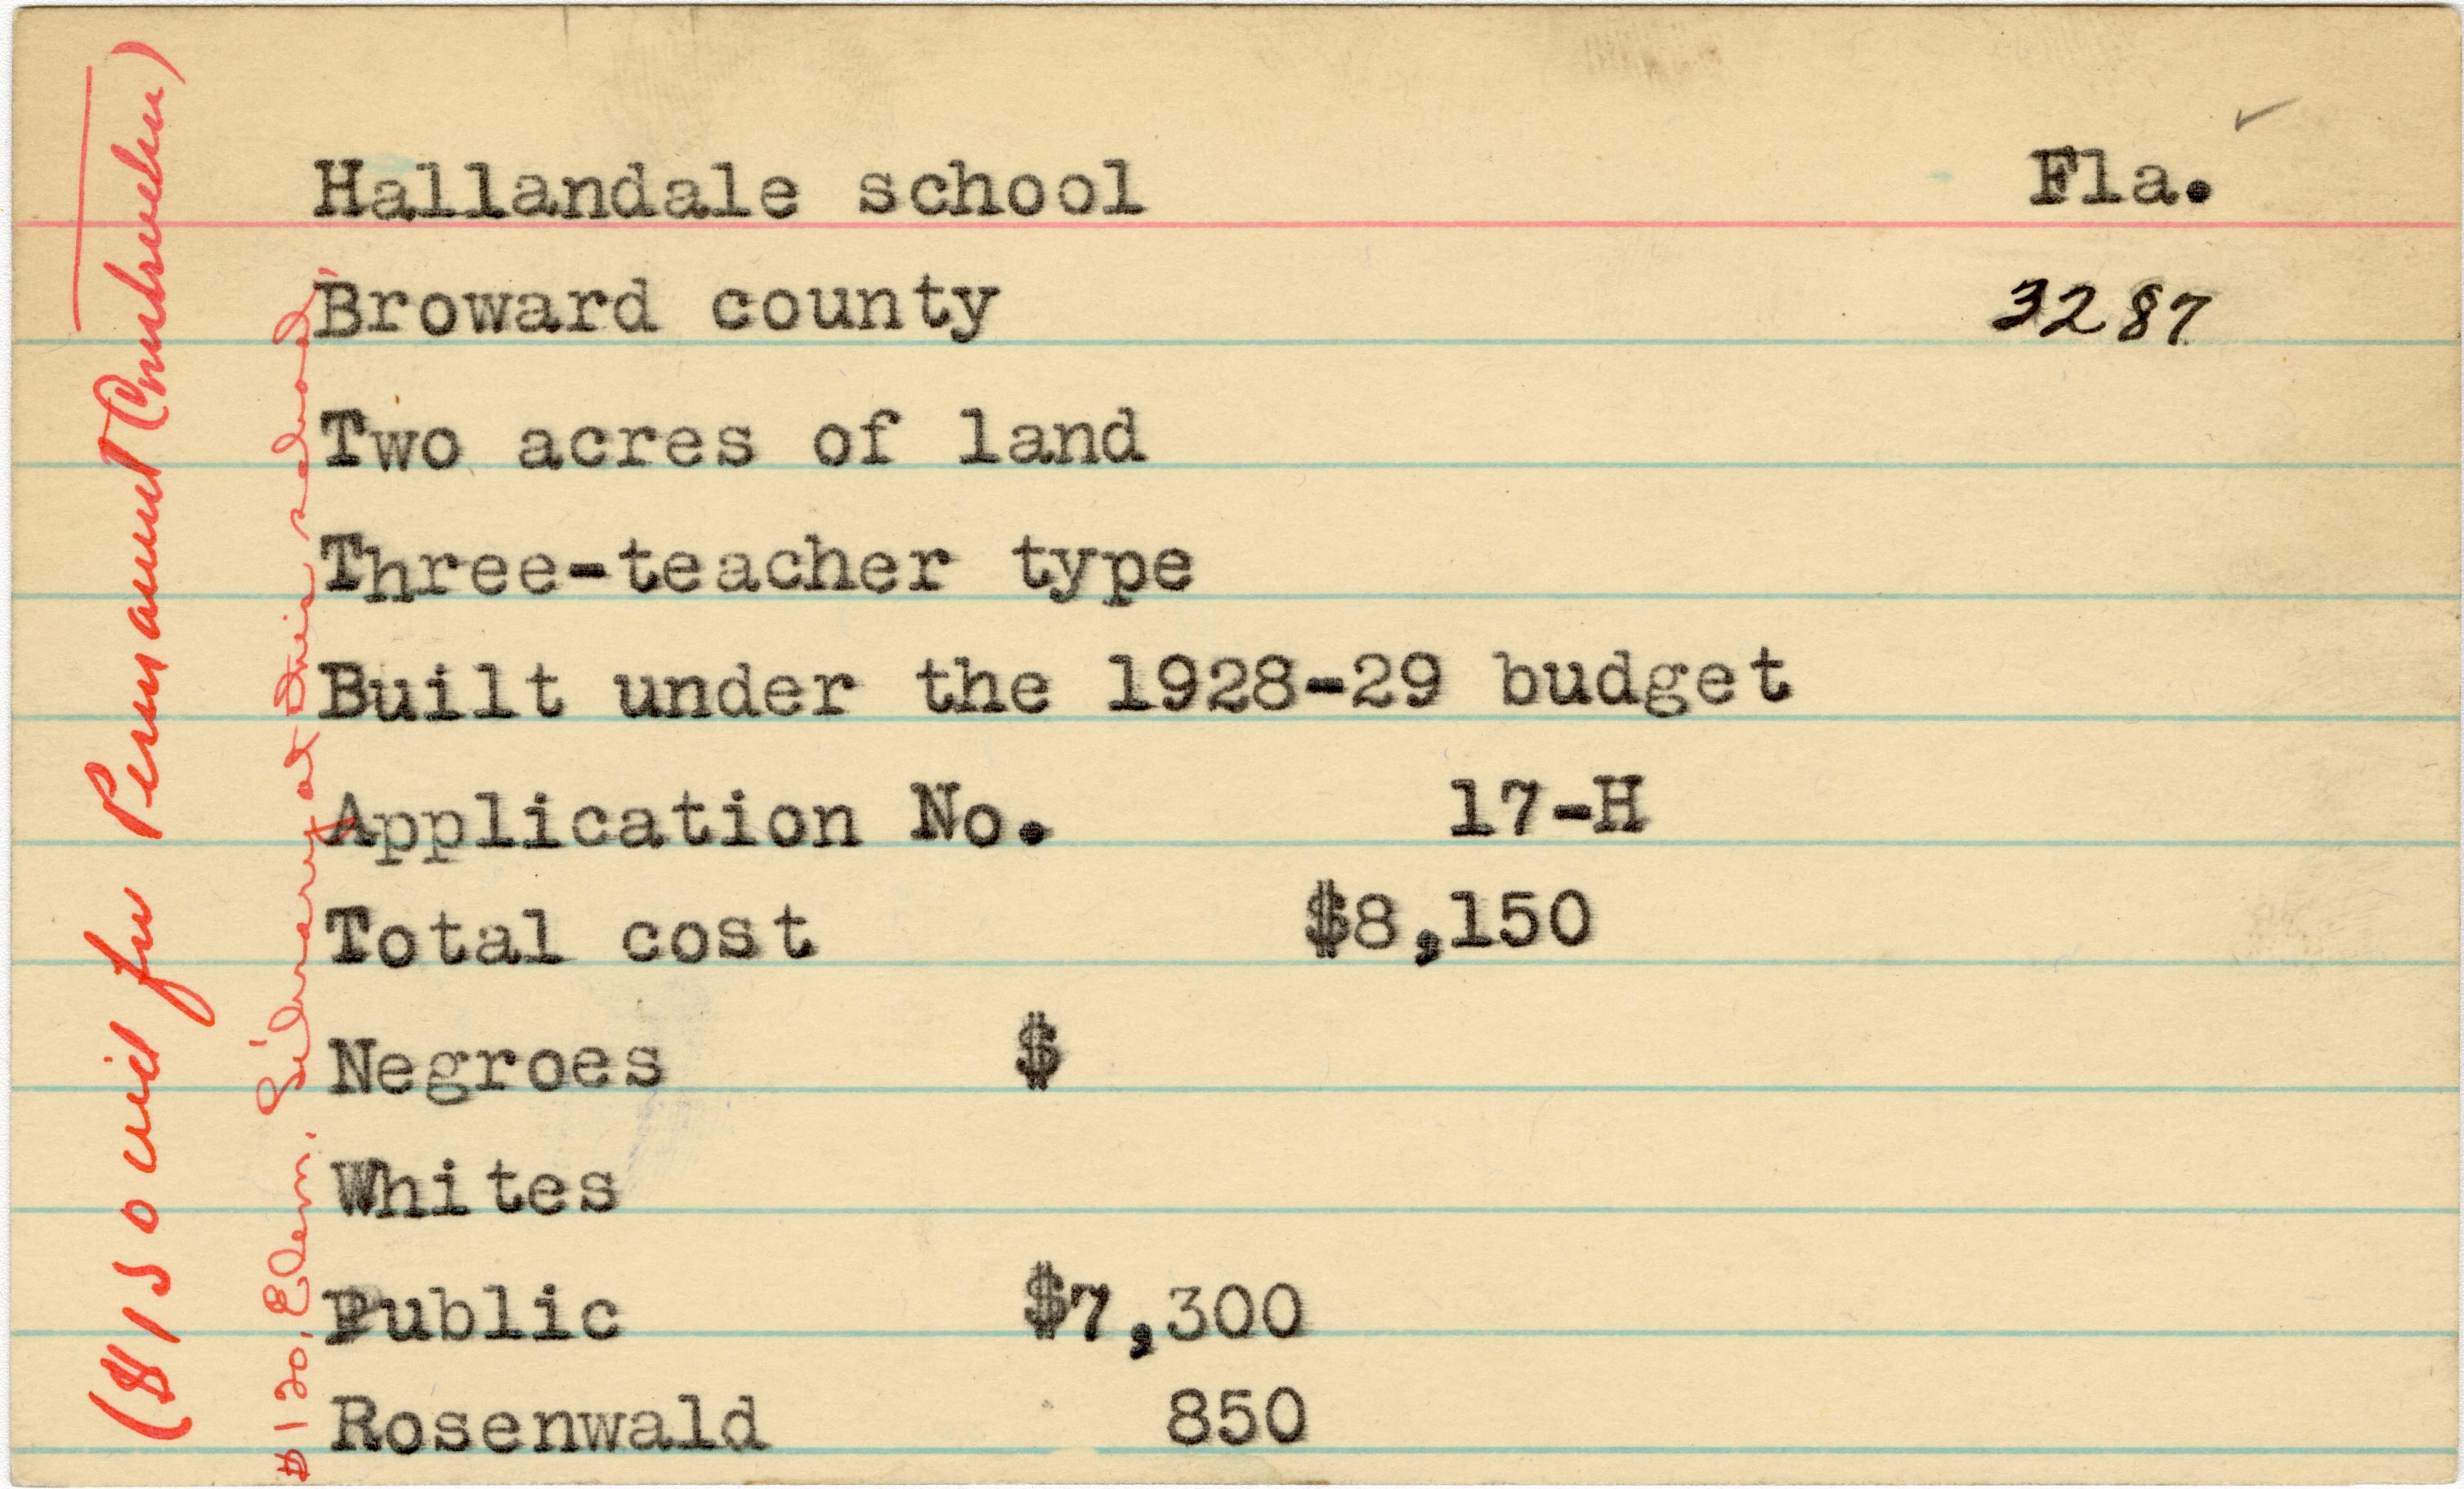 Hallandale school Fla.
Broward county 3287
Two acres of land
Three-teacher type
Built under the 1928-29 budget
Application No. 17-H
Total cost $8,150
Negroes $
Whites
Public $7,300
Rosenwald 850
($150 aid for Permanent Construction)
$120. Elem. Library at this school.